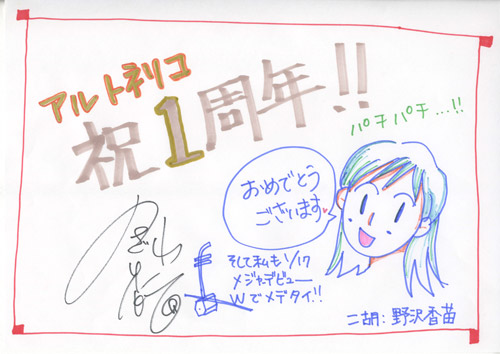 アルトネリコ
祝1周年!!
パチパチ…!!
おめでとう
ございます♥
そして私も1/17
メジャーデビュー
Wでメデタイ!!
二胡:野沢香苗